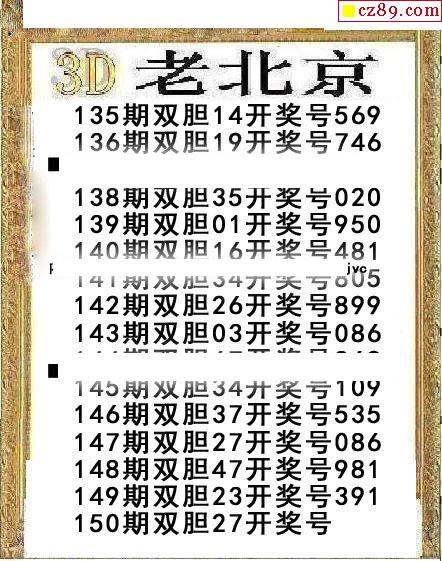 cz89.com
3D 老北京
135期双胆14开奖号569
136期双胆19开奖号746
138期双胆35开奖号020
139期双胆01开奖号950
140期双胆16开奖号481
jvc
141期双胆34开奖号805
142期双胆26开奖号899
143期双胆03开奖号086
145期双胆34开奖号109
146期双胆37开奖号535
147期双胆27开奖号086
148期双胆47开奖号981
149期双胆23开奖号391
150期双胆27开奖号